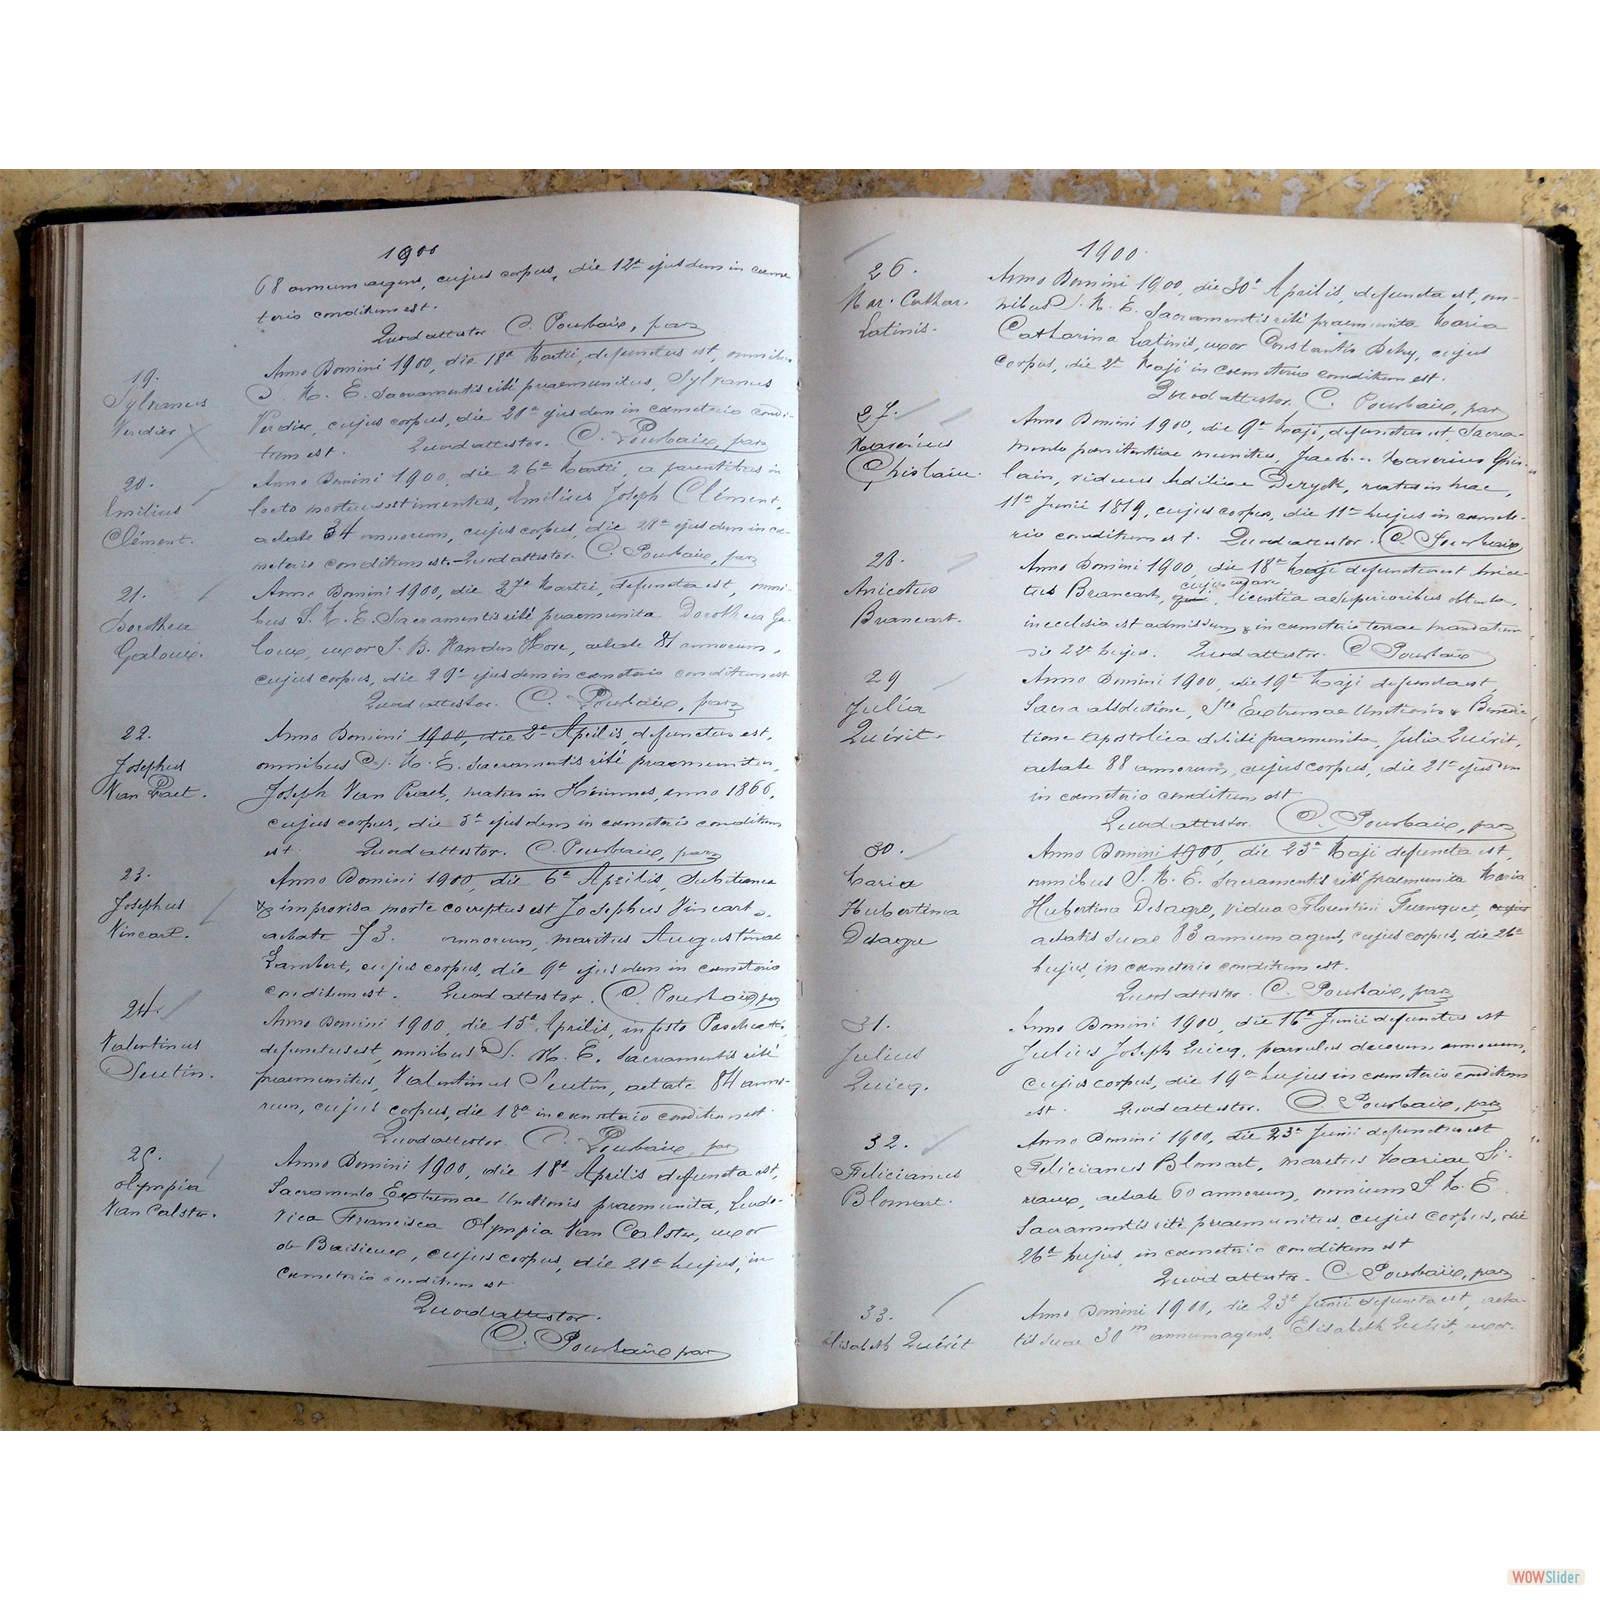 1900
68 annum agens, cujus corpus, die 12ª ejusdem in coeme
terio conditum est.
Quod attestor C. Pourbaix, par
19.
Sylvanus
Verdier
Anno Domini 1900, die 18ª Martii, defunctus est, omnibus
S. M. E. Sacramentis rité praemunitus, Sylvanus
Verdier, cujus corpus, die 20ª ejusdem in cameterio condi-
tum est. Quod attestor. C. Pourbaix, par
20.
Emilius
Clément.
Anno Domini 1900, die 26ª Martii, a parentibus in
lecto mortuus est inventus, Emilius Joseph Clément,
aetate 34 annorum, cujus corpus, die 28ª ejusdem in ca-
meterio conditum est.- Quod attestor. C. Pourbaix, par
21.
Dorothea
Galoux.
Anno Domini 1900, die 27ª Martii, defuncta est, omni-
bus S. M. E. Sacramentis rité praemunita Dorothea Ga-
loux, uxor J. B. Vanden Hove, aetate 81 annorum,
cujus corpus, die 29ª ejusdem in cameterio conditum est
Quod attestor. C. Pourbaix, par
22.
Josephus
Van Praet.
Anno Domini 1900, die 2ª Aprilis, defunctus est,
omnibus S. M. E. Sacramentis rité praemunitus,
Joseph Van Praet, natus in Hérinnes, anno 1866,
cujus corpus, die 5ª ejusdem in cameterio conditum
est. Quod attestor. C. Pourbaix, par
23.
Josephus
Vincart.
Anno Domini 1900, die 6ª Aprilis, Subitanea
& improvisa morte correptus est Josephus Vincart,
aetate 73 annorum, maritus Augustinae
Lambert, cujus corpus, die 9ª ejusdem in cameterio
conditum est. Quod attestor. C. Pourbaix, par
24.
Valentinus
Seutin.
Anno Domini 1900, die 15ª Aprilis, in festo Paschatis,
defunctus est, omnibus S. M. E. Sacramentis rité
praemunitus, Valentinus Seutin, aetate 84 anno-
rum, cujus corpus, die 18ª in cameterio conditum est.
Quod attestor C. Pourbaix, par
25.
Olympia
Van Calster.
Anno Domini 1900, die 18ª Aprilis defuncta est,
Sacramento Extremae Unctionis praemunita, Ludo-
vica Francisca Olympia Van Calster, uxor
de Baisieux, cujus corpus, die 21ª hujus, in
Cameterio conditum est
Quod attestor.
C. Pourbaix par
1900.
26.
Mar. Cathar.
Latinis.
Anno Domini 1900, die 30ª Aprilis, defuncta est, om-
nibus S. M. E. Sacramentis rité praemunita Maria
Catharina Latinis, uxor Constantis Dehy, cujus
corpus, die 2ª Maji in coemeterio conditum est.
Quod attestor. C. Pourbaix, par
27.
Xaverius
Ghislain.
Anno Domini 1900, die 9ª Maji, defunctus est, Sacra-
mento poenitentiae munitus, Xaverius Ghis-
lain, viduus Deryck, natus in hac,
11ª Junii 1819, cujus corpus, die 11ª hujus in camete-
rio conditum est. Quod attestor. C. Pourbaix
28.
Anicetus
Brancart.
Anno Domini 1900, die 18ª Maji defunctus est Anice-
cujus
tus Brancart, licentia a superioribus obtenta,
in eclesia est admissum & in cameterio terrae mandatum
die 22ª hujus. Quod attestor. C Pourbaix
29
Julia
Quérit.
Anno Domini 1900, die 19ª Maji defuncta est
Sacra absolutione, Stª Extremae Unctionis & Benedic
tione apostolica praemunita, Julia Quérit,
aetate 88 annorum, cujus corpus, die 21ª ejusdem
in cameterio conditum est
Quod attestor. C. Pourbaix, par
30.
Maria
Hubertina
Desagre
Anno Domini 1900, die 23ª Maji defuncta est,
omnibus S. M. E. Sacramentis rité praemunita Maria
Hubertina Desagre, vidua Florentini Franquet, cujus
aetatis suae 83 annum agens, cujus corpus, die 26ª
hujus, in cameterio conditum est.
Quod attestor C. Pourbaix, par
31.
Julius
Quicq.
Anno Domini 1900, die 16ª Junii defunctus est
Julius Joseph Quicq, parvulus annorum,
cujus corpus, die 19ª hujus in cameterio conditum
est. Quod attestor. C. Pourbaix, par
32.
Felicianus
Blomart.
Anno Domini 1900, die 23ª Junii defunctus est
Felicianus Blomart, maritus Mariae Si-
raux, aetate 60 annorum, omnium S. M. E
Sacramentis rité praemunitus, cujus corpus, die
26ª hujus, in cameterio conditum est
Quod attestor. C. Pourbaix, par
33.
Elisabeth Quérit
Anno Domini 1900, die 23ª Junii defuncta est, aeta-
tis suae 30m annum agens, Elisabeth Quérit, uxor
WOWSlider